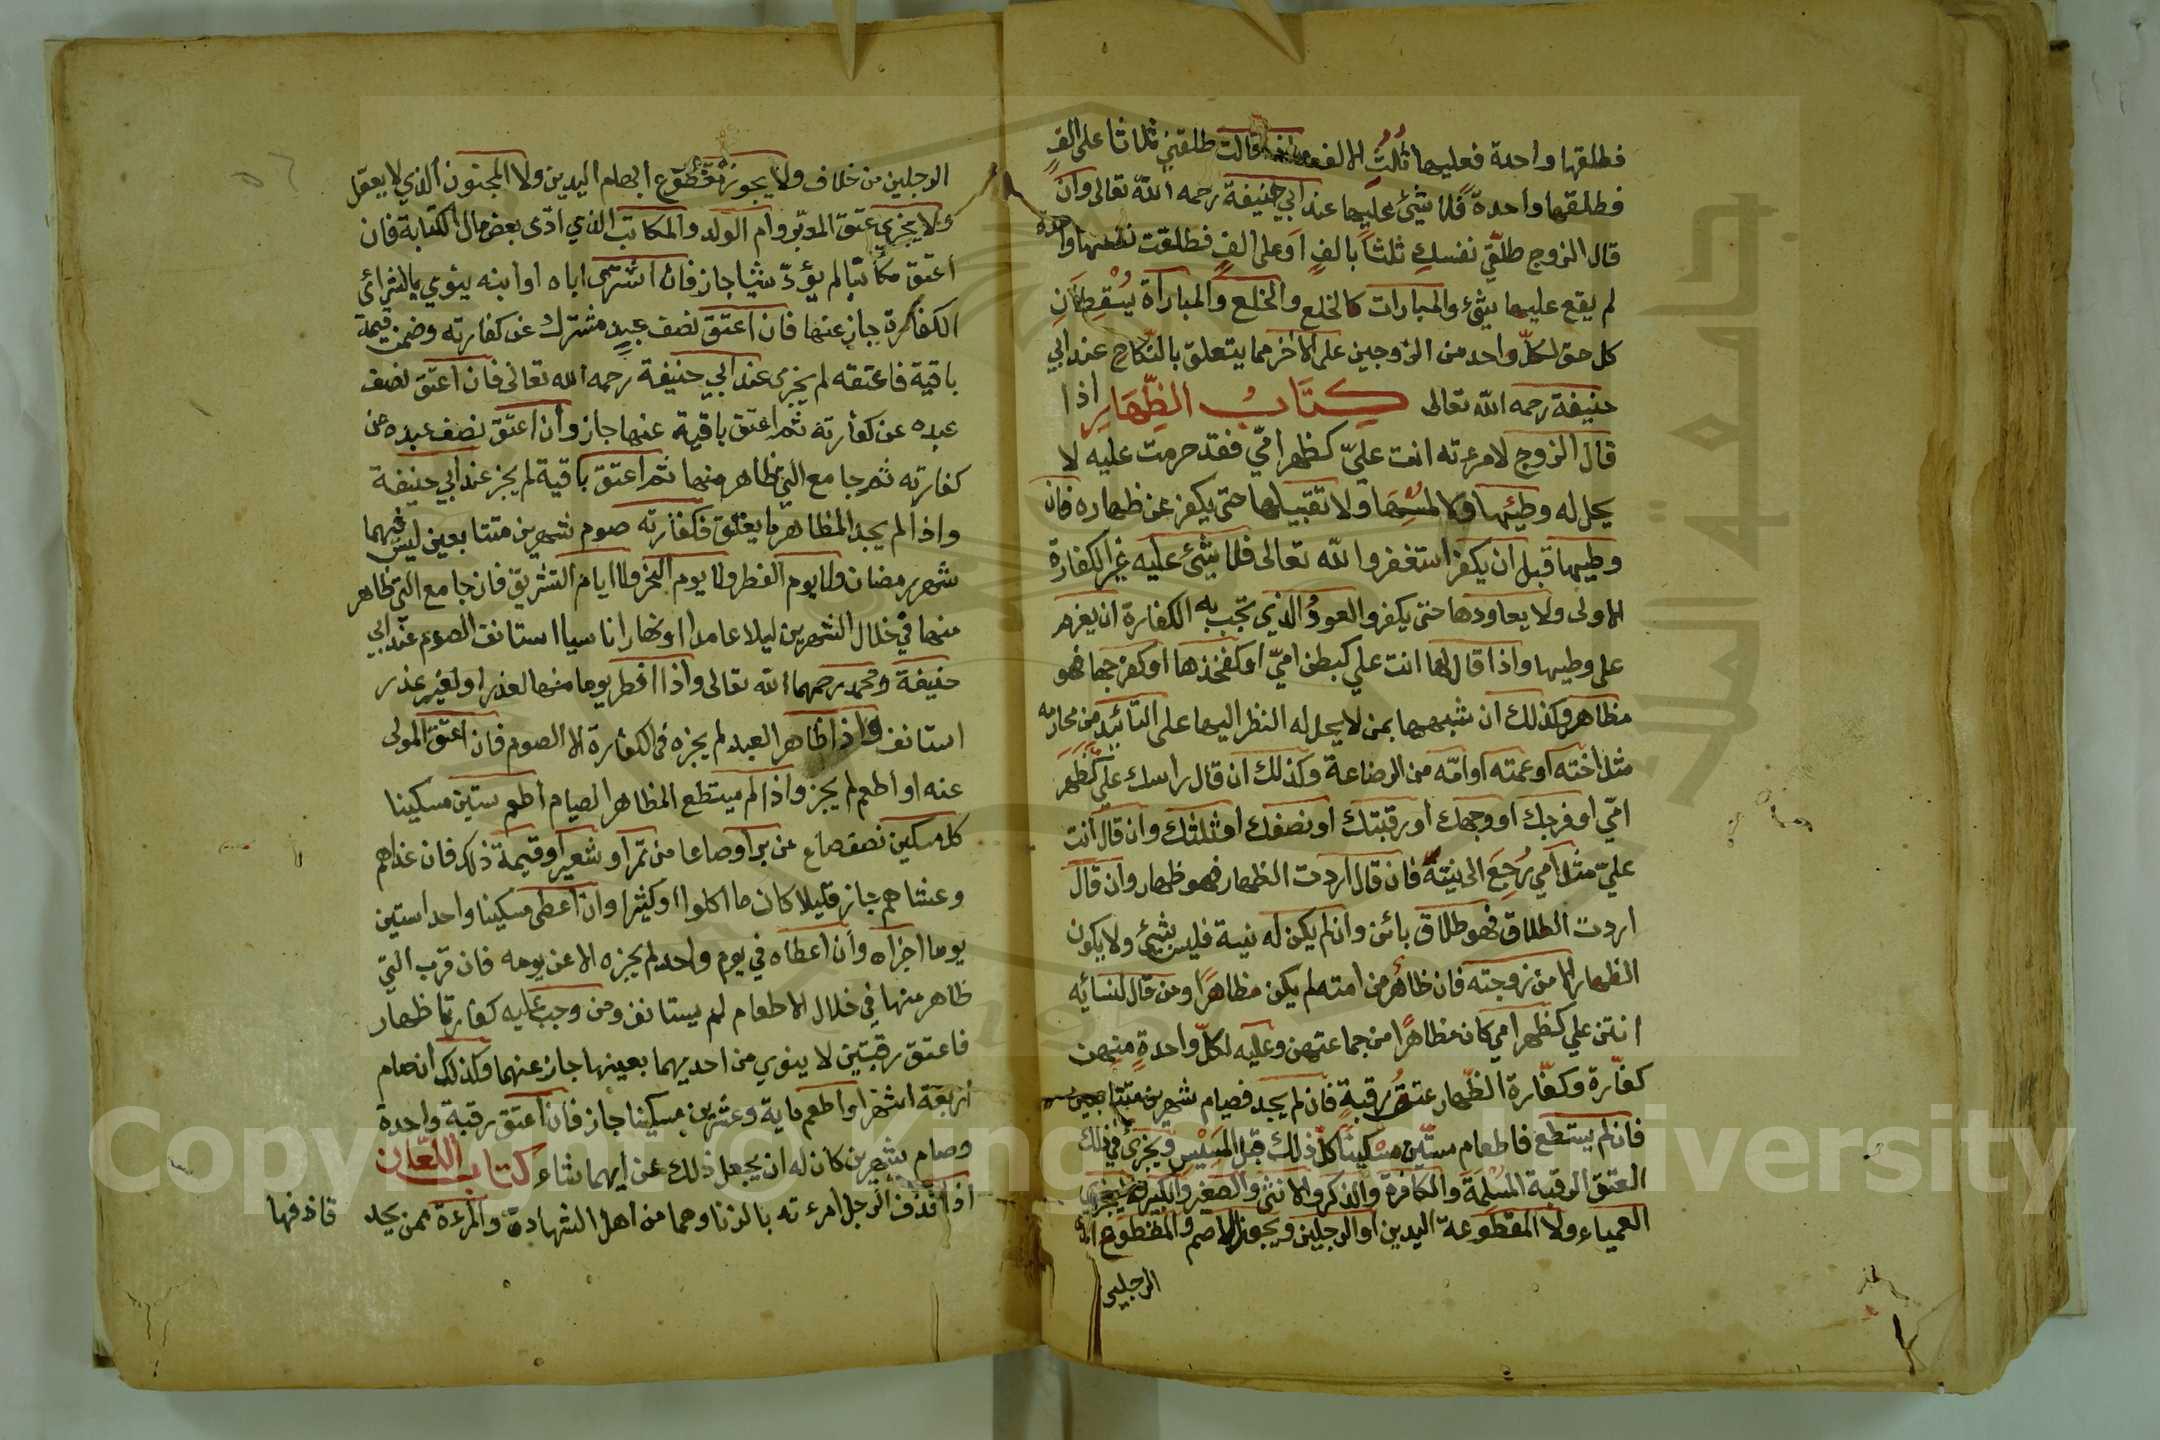 فطلقها واحدة فعليها ثُلُثُ الالف وان قالت طلقني ثلاثا على الفٍ
فطلقها واحدةً فلا شيئ عليها عند ابي حنيفة رحمه الله تعالى وان
قال الزوج طلّقي نفسكِ ثلثاً بالفٍ او على الفٍ فطلقت نفسها واحدة
لم يقع عليها شيئ والمبارات كالخلع والخلع والمباراة يُسْقِطَانِ
كل حق لكلّ واحد من الزوجين على الاخر مما يتعلق بالنّكاح عند ابي
حنيفة رحمه الله تعالى كِتَابُ الظِّهَارِ اذا
قال الزوج لامرءته انت عليّ كظهر امّي فقد حرمت عليه لا
يحل له وطيئها ولا لمسُها ولا تقبيلها حتى يكفر عن ظهاره فان
وطيها قبل ان يكفر استغفر الله تعالى فلا شيئ عليه غير الكفارة
الاولى ولا يعاودها حتى يكفر والعودُ الذي تجب به الكفارة ان يعزم
على وطيها واذا قال لها انت علي كبطن امّي او كفخذها او كفرجها فهو
مظاهر وكذلك ان شبهها بمن لا يحل له النظر اليها على التأبيد من محارمه
مثل اخته او عمته او امّه من الرضاعة وكذلك ان قال راسك عليّ كظهر
امّي او فرجك او وجهك او رقبتك او نصفك او ثلثك وان قال انت
عليّ مثل امي رُجِعَ الى نيته فان قال اردت الظهار فهو ظهار وان قال
اردت الطلاق فهو طلاق بائن وان لم يكن له نية فليس بشيئ ولا يكون
الظهار الا من زوجته فان ظاهر من امته لم يكن مظاهرًا ومن قال لنسائه
انتن علي كظهر امي كان مظاهرًا من جماعتهن وعليه لكلّ واحدةٍ منهن
كفّارة وكفّارة الظّهار عتقُ رقبةٍ فان لم يجد فصيام شهرين متتابعين
فان لم يستطع فاطعام ستّين مسْكينًا كلّ ذلك قبل المَسِيْسِ ويجزئ في ذلك
العتق الرقبة المسْلمَة والكافرة والذكر والانثى والصغير والكبير ولا يجزي
العمياء ولا المقطوعة اليدين او الرجلين ويجوز الاصم والمقطوع
الرجلين
الرجلين من خلاف ولا يجوز مقطوع ابهام اليدين ولا المجنون الذي لا يعقل
ولا يجزي عتق المدبّر وام الولد والمكاتب الذي ادّى بعض مال الكتابة فان
اعتق مكاتبًا لم يؤدّ شيا جاز فان اشترى اباه او ابنه ينوي بالشرائ
الكفارة جاز عنها فان اعتق نصف عبدٍ مشترك عن كفارته وضمن قيمة
باقية فاعتقه لم يجزى عند ابي حنيفة رحمه الله تعالى فان اعتق نصف
عبده عن كفارته ثم اعتق باقية عنها جاز وان اعتق نصف عبده عن
كفارته ثم جامع التي ظاهر منها ثم اعتق باقية لم يجز عند ابي حنيفة
واذا لم يجد المظاهر ما يعتق فكفارته صوم شهرين متتابعين ليس فيهما
شهر رمضان ولا يوم الفطر ولا يوم النحر ولا ايام التشريق فان جامع التي ظاهر
منها في خلال الشهرين ليلا عامدا او نهارا ناسيا استانف الصوم عند ابي
حنيفة ومحمد رحمهما الله تعالى واذا افطر يوما منها لعذر او لغير عذر
استانف واذا ظاهر العبد لم يجزه في الكفارة الا الصوم فان اعتق المولى
عنه او اطعم لم يجز واذا لم يستطع المظاهر الصيام اطعم ستين مسكينا
كل مسكين نصف صاع من بر او صاعا من تمر او شعير او قيمة ذلك فان غداهم
وعشاهم جاز قليلا كان ما اكلوا او كثيرا وان اعطى مسكينا واحدا ستين
يوما اجزاه وان اعطاه في يوم واحد لم يجزه الا عن يومه فان قرب التي
ظاهر منها في خلال الاطعام لم يستانف ومن وجب عليه كفارتا ظهار
فاعتق رقبتين لا ينوي من احديهما بعينها جاز عنهما وكذلك ان صام
اربعة اشهر او اطعم ماية وعشرين مسكينا جاز فان اعتق رقبة واحدة
وصام شهرين كان له ان يجعل ذلك عن ايهما شاء كتاب اللعان
اذا قذف الرجل امرءته بالزنا وهما من اهل الشهادة والمرءة ممن يحد
قاذفها
جامعة الملك
Copyright © King Saud University